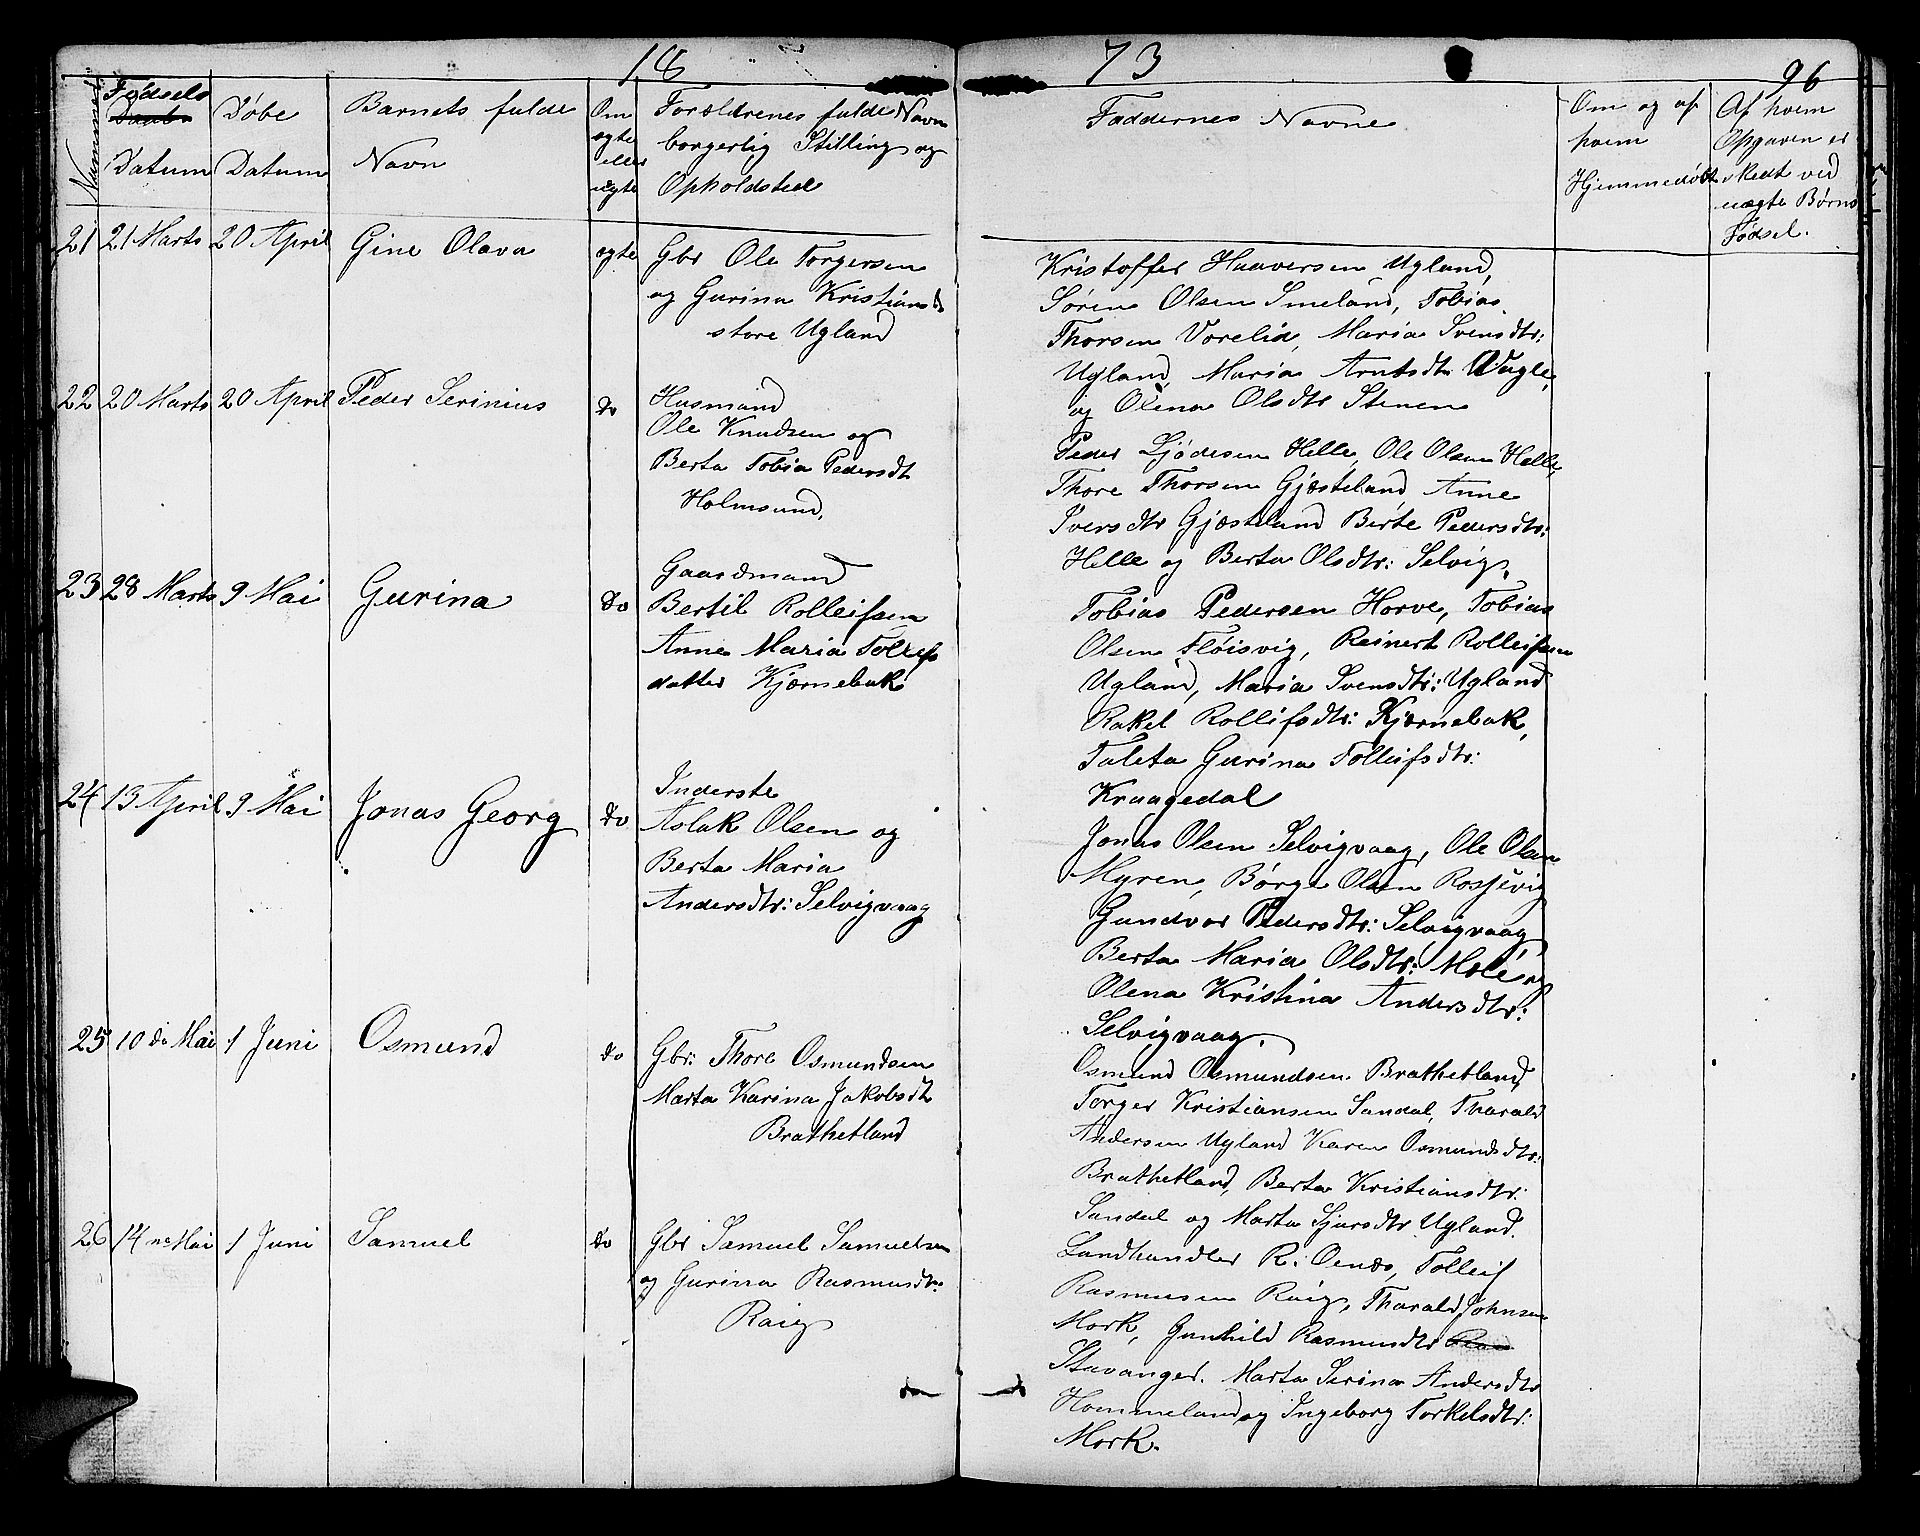 18 73 96
Nummer
Fødsels
Datum
Døbe
Datum
Barnets fulde
Navn
Om
ægte
eller
uægte
Forældrenes fulde Navn
borgerlig Stilling og
Opholdsted
Faddernes Navne
Om og af
hvem
Hjemmedøbt
Af hvem
Opgaven er
skedt ved
uægte Børns
Fødsel.
21 21 Marts 20 April Gine Olava ægte
Gbr Ole Torgersen
og Gurina Kristiansd
store Ugland
Kristoffer Haaversen Ugland,
Søren Olsen Smeland, Tobias
Thorsen Vorelid, Maria Svensdtr:
Ugland, Maria Arntsdt
og Olena Olsdtr Stenen
22 20 Marts 20 April Peder Serinius do
Husmand
Ole Knudsen og
Berta Tobia Pedersdt
Holmsund,
Peder Sjødesen Helle, Ole Olsen Helle,
Thore Thorsen Gjæsteland, Anne
Sversdtr Gjæsteland Berte Pedersdtr:
Helle og Berta Olsdtr: Selvig,
23 28 Marts 9 Mai Gurina do
Gaardmand
Bertil Rolleifsen
Anne Maria Tollefs
datter Kjærnebak
Tobias Pedersen Horve, Tobias
Olsen Fløisvig, Reinert Rolleifsen
Ugland, Maria Svensdtr: Ugland
Rakel Rollifsdtr: Kjærnebak,
Taleta Gurina Tolleifsdtr:
Kraagedal
24 13 April 9 Mai Jonas Georg do
Inderste
Aslak Olsen og
Berta Maria
Andersdtr: Selvigvaag
Jonas Olsen Selvigvaag, Ole Olsen
Myren, Børge Olsen Rosjevig
Gundvor Pedersdtr: Selvigvaag,
Berta Maria Olsdtr: Mole og
Olena Kristina Andersdtr:
Selvigvaag.
25 10 de Mai 1 Juni Osmund do
Gbr: Thore Osmundsen
Marta Karina Jakobsdt
Brathetland
Osmund Osmundsen Brathetland,
Torger Kristiansen Sandal, Tharald
Andersen Ugland Karen Osmundsdtr:
Brathetland, Berta Kristiansdtr:
Sandal og Marta Sjursdtr Ugland.
26 14 ne Mai 1 Juni Samuel do
Gbr Samuel Samuelsen
og Gurina Rasmusdtr:
Raig
Landhandler R: Oenæs, Tolleif
Rasmusen Raig, Tharald Johnsen
Mork, Gunhild Rasmusdtr
Stavanger. Marta Serina Andersdtr
Hommeland og Ingeborg Torkelsdtr:
Mork.